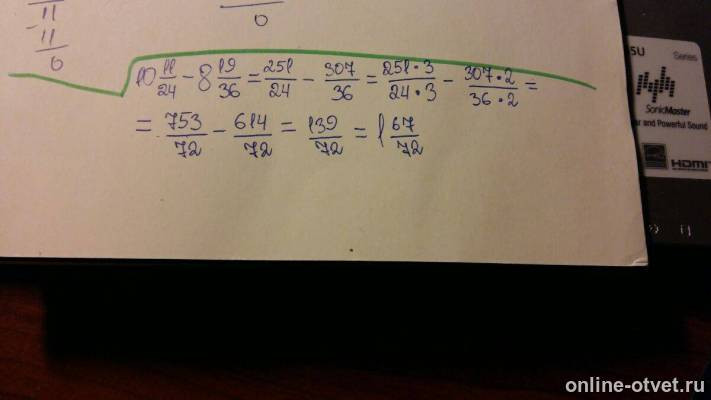 11
-
11
0
0
10 11/24 - 8 19/36 = 251/24 - 307/36 = 251·3/24·3 - 307·2/36·2 =
= 753/72 - 614/72 = 139/72 = 1 67/72
SU
Series
SonicMaster
ar and Powerful Sound
HDMI
online-otvet.ru